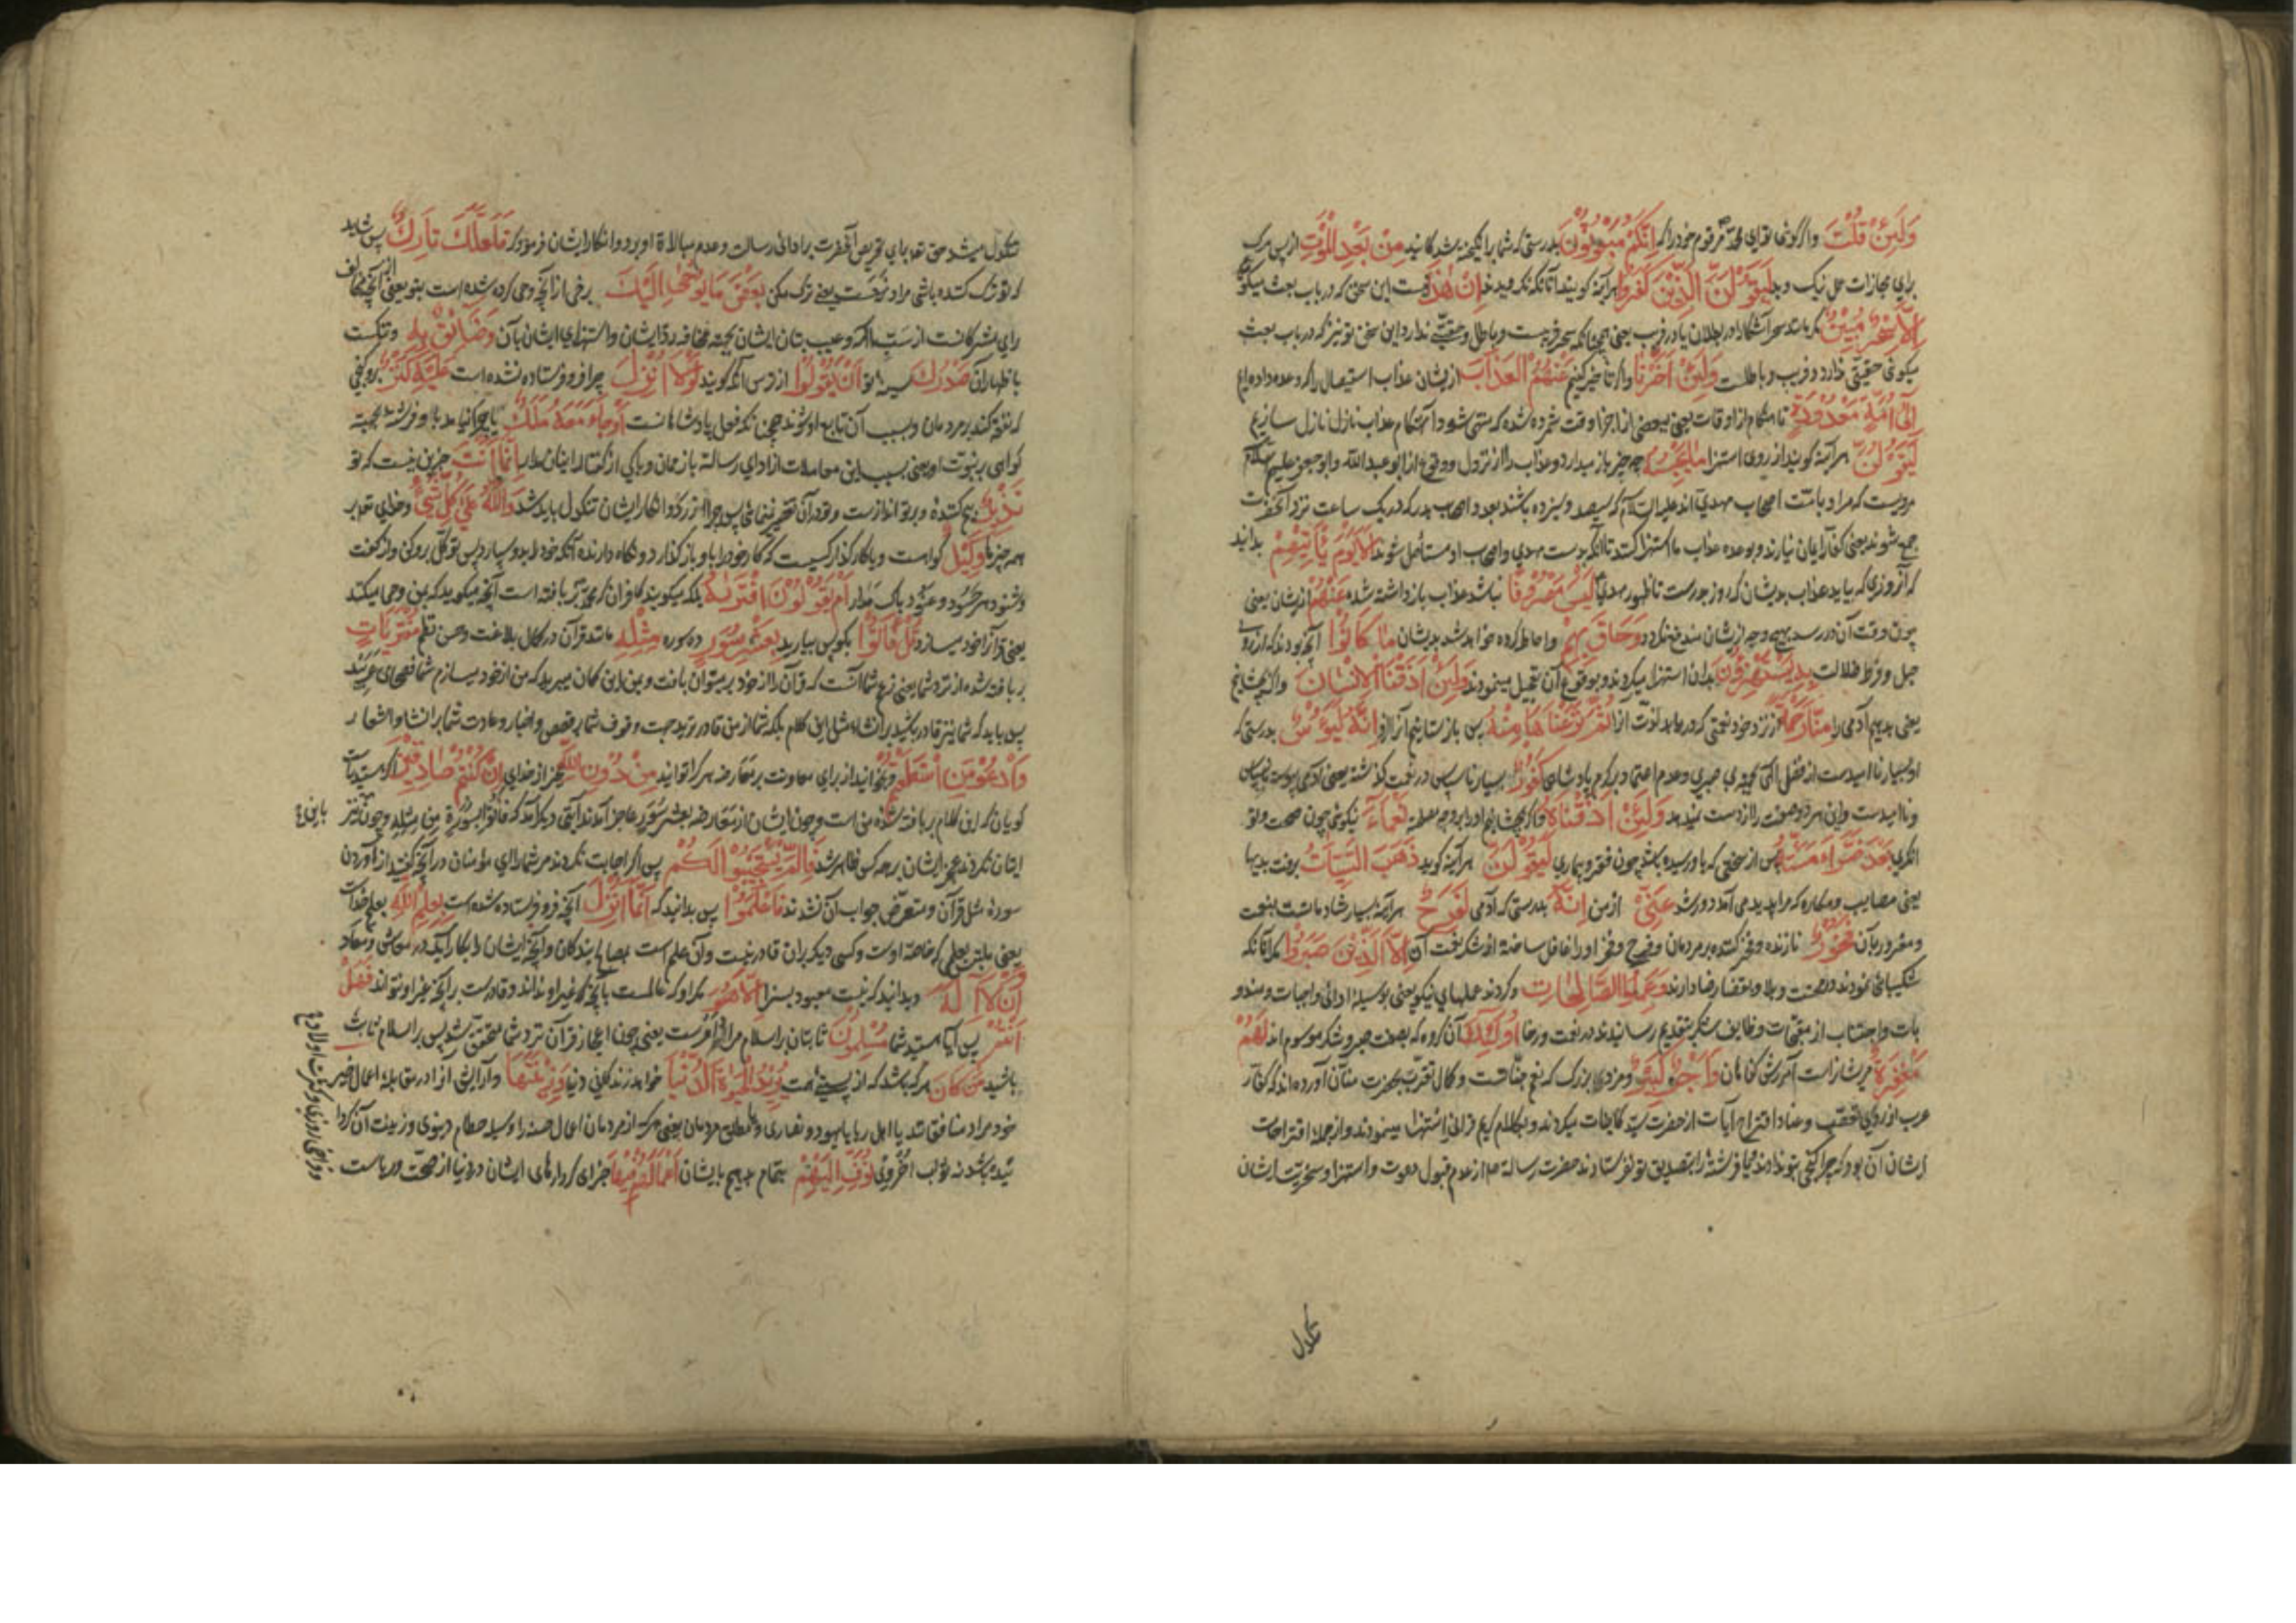 وَلَئِنْ قُلْتَ واگر گوئی تو ای محمد مر قوم خود را که اِنَّكُمْ مَبْعُوثُونَ بدرستی که شما برانگیخته شدگانید مِنْ بَعْدِ الْمَوْتِ از پس مرگ
برای مجازات عمل نیک و بد لَيَقُولَنَّ الَّذِينَ كَفَرُوا هرآینه گویند آنانکه نگرویدند اِنْ هٰذَا نیست این سخن که در باب بعث میگوئی
اِلَّا سِحْرٌ مُبِينٌ مگر مانند سحر آشکارا در بطلان یا در فریب یعنی همچنانکه سحر فریبست و باطل و حقیقتی ندارد این سخن تو نیز که در باب بعث
میگوئی حقیقتی ندارد و فریب و باطلست وَلَئِنْ اَخَّرْنَا واگر تأخیر کنیم عَنْهُمُ الْعَذَابَ از ایشان عذاب استیصال را که وعده داده ایم
اِلٰى اُمَّةٍ مَعْدُودَةٍ تا هنگام از اوقات یعنی ببعضی از اجزا وقت شمرده شده که منتهی شود آن هنگام عذاب نازل سازیم
لَيَقُولُنَّ هرآینه گویند از روی استهزا مَا يَحْبِسُهُ چه چیز باز میدارد عذاب را از نزول و وقوع از ابو عبد الله و ابو جعفر علیهم السلام
مرویست که مراد بامت اصحاب مهدی اند علیه السلام که سیصد و سیزده باشند بعدد اصحاب بدر که در یک ساعت نزد آنحضرت
جمع شوند یعنی کفار ایمان نیارند و بوعده عذاب ما استهزا کنند تا آنکه بدست مهدی و اصحاب او مستأصل شوند اَلَا يَوْمَ يَأْتِيهِمْ بدانید
که آنروزی که بیاید عذاب بدیشان که روز بدرست تا ظهور مهدی لَيْسَ مَصْرُوفًا نباشد عذاب بازداشته شده عَنْهُمْ از ایشان یعنی
چون وقت آن در رسد بهیچ وجه از ایشان مندفع نگردد وَحَاقَ بِهِمْ و احاطه کرده خواهد شد بدیشان مَا كَانُوا آنچه بودند که از روی
جهل و فرط ضلالت بِهِ يَسْتَهْزِؤُنَ بدان استهزا میکردند و بوقوع آن تعجیل مینمودند وَلَئِنْ اَذَقْنَا الْاِنْسَانَ واگر بچشانیم
یعنی بدهیم آدمی را مِنَّا رَحْمَةً از نزد خود نعمتی که دریابد لذت آنرا ثُمَّ نَزَعْنَاهَا مِنْهُ پس باز ستانیم آنرا ازو اِنَّهُ لَيَؤُسٌ بدرستی که
او بسیار ناامیدست از فضل الهی بجهة بی صبری و عدم اعتماد بر کرم پادشاهی كَفُورٌ بسیار ناسپاس در نعمت گذشته یعنی آدمی پیوسته بسپاس
و ناامیدست و این هر دو صفت را از دست نمیدهد وَلَئِنْ اَذَقْنَاهُ واگر بچشانیم او را بر وجه مطلق نَعْمَاءَ نیکوئی چون صحت و تو
انگری بَعْدَ ضَرَّاءَ مَسَّتْهُ پس از سختی که باو رسیده باشد چون فقر و بیماری لَيَقُولَنَّ هرآینه گوید ذَهَبَ السَّيِّئَاتُ برفت بدیها
یعنی مصایب و مکاره که مرا پدید می آمد دور شد عَنِّي از من اِنَّهُ بدرستی که آدمی لَفَرِحٌ هرآینه بسیار شادمانست بنعمت
و مغرور بآن فَخُورٌ نازنده و فخر کننده بر مردمان و فرح و فخر او را غافل ساخته از شکر نعمت آن اِلَّا الَّذِينَ صَبَرُوا مگر آنانکه
شکیبائی نمودند در محنت و بلا و بقضا رضا دارند وَعَمِلُوا الصَّالِحَاتِ و کردند عملهای نیکو یعنی بوسیله ادای واجبات و مندو
بات و اجتناب از مقبحات وظایف شکر بتقدیم رسانیدند در نعمت و رخا اُولٰئِكَ آن گروه که بصفت صبر و شکر موسوم اند لَهُمْ
مَغْفِرَةٌ مر ایشانراست آمرزش گناهان وَاَجْرٌ كَبِيرٌ و مزدی بزرگ که نعیم جنانست و کمال تقرب بحضرت منان آورده اند که کفار
عرب از روی تعصب و عناد اقتراح آیات از حضرت سید کاینات میکردند و بکلام کریم قرانی استهزا مینمودند و از جمله اقتراحات
ایشان آن بود که چرا گنجی بتو ندادند یا فرشته را بتصدیق تو نفرستادند حضرت رسالة صلعم از عدم قبول دعوت و استهزا و سخریت ایشان
تنگدل
تنگدل میشد حق تعالی برای تحریص آنحضرت بر ادای رسالت و عدم مبالاة او برد و انکار ایشان فرمود که فَلَعَلَّكَ تَارِكٌ پس شاید
که تو ترک کننده باشی مراد نهیست یعنی ترک مکن بَعْضَ مَا يُوحٰى اِلَيْكَ برخی از آنچه وحی کرده شده است بتو یعنی آنچه مخالف
رای مشرکانست از سب آلهه و عیب بتان ایشان بجهة مخافه رد ایشان و استهزای ایشان بآن وَضَائِقٌ بِهِ و تنگست
باظهار آن صَدْرُكَ سینه تو اَنْ يَقُولُوا از ترس آنکه گویند لَوْلَا اُنْزِلَ چرا فرو فرستاده نشده است عَلَيْهِ كَنْزٌ برو گنجی
که نفقه کند بر مردمان و بسبب آن تابع او شوند چنانکه فعل پادشاهانست اَوْ جَاءَ مَعَهُ مَلَكٌ یا چرا نیامد با او فرشته بجهة
گواهی بر نبوت او یعنی بسبب این معاملات از ادای رسالة باز ممان و باکی از گفتار اینان مدار اِنَّمَا اَنْتَ جز این نیست که تو
نَذِيرٌ بیم کننده و بر تو اندازست و تو در آن تقصیر نمینمائی پس چرا از رد و انکار ایشان تنگدل باید شد وَاللهُ عَلٰى كُلِّ شَيْءٍ و خدای تعالی بر
همه چیزها وَكِيلٌ گواهست و یا کارگذار کسیست که کار خود را باو باز گذارد و نگاه دارنده آنکه خود را بدو سپارد پس توکل برو کن و از گفت
و شنود هر حسود و عنود باک مدار اَمْ يَقُولُونَ افْتَرٰيهُ بلکه میگویند کافران که محمد بربافته است آنچه میگوید که بمن وحی میکنند
یعنی قرآنرا خود میسازد قُلْ فَأْتُوا بگو پس بیارید بِعَشْرِ سُوَرٍ ده سوره مِثْلِهِ مانند قرآن در کمال بلاغت و حسن نظم مُفْتَرَيَاتٍ
بربافته شده از نزد شما یعنی زعم شما آنست که قرآن را از خود بر میتوان بافت و بمن این گمان میبرید که من از خود میسازم شما فصحای عربید
پس باید که شما نیز قادر باشید بر انشاء مثل این کلام بلکه شما از من قادرترید بجهت وقوف شما بر قصص و اخبار و عادت شما بر انشا و اشعار
وَادْعُوا مَنِ اسْتَطَعْتُمْ و بخوانید از برای معاونت بر معارضه هر کرا توانید مِنْ دُونِ اللهِ بجز از خدای اِنْ كُنْتُمْ صَادِقِينَ اگر هستید راست
گویان که این کلام بربافته شده منست و چون ایشان از معارضه بعشر سور عاجز آمدند آیتی دیگر آمد که فأتوا بسورة من مثله و چون باین نیز
ایتان نکردند عجز ایشان بر همه کس ظاهر شد فَاِلَّمْ يَسْتَجِيبُوا لَكُمْ پس اگر اجابت نکردند مر شما را ای مؤمنان در آنچه گفتید از آوردن
سورة مثل قرآن و متعرض جواب آن نشدند فَاعْلَمُوا پس بدانید که اَنَّمَا اُنْزِلَ آنچه فرو فرستاده شده است بِعِلْمِ اللهِ بعلم خداست
یعنی ملتبس بعلمی که خاصه اوست و کسی دیگر بران قادر نیست و آن علم است بمصالح بندگان و آنچه ایشان را بکار آید در معاش و معاد
وَاَنْ لَا اِلٰهَ و بدانید که نیست معبود بسزا اِلَّا هُوَ مگر او که عالمست بآنچه که غیر او نداند و قادرست بر آنچه غیر او نتواند فَهَلْ
اَنْتُمْ پس آیا هستید شما مُسْلِمُونَ ثابتان بر اسلام مراد امرست یعنی چون اعجاز قرآن نزد شما محقق شد پس بر اسلام ثابت
باشید مَنْ كَانَ هر که باشد که از پستی همت يُرِيدُ الْحَيٰوةَ الدُّنْيَا خواهد زندگانی دنیا وَزِينَتَهَا و آرایش آنرا در مقابله اعمال خیر
خود مراد منافقانند یا اهل ریا یا یهود و نصاری و یا مطلق مردمان یعنی هر که از مردمان اعمال حسنه را وسیله حطام دنیوی و زینت آن گردا
نیده باشد نه ثواب اخروی نُوَفِّ اِلَيْهِمْ بتمام بدهیم بایشان اَعْمَالَهُمْ فِيهَا جزای کردارهای ایشان در دنیا از صحت و ریاست
و فراخی روزی و کثرت اولاد